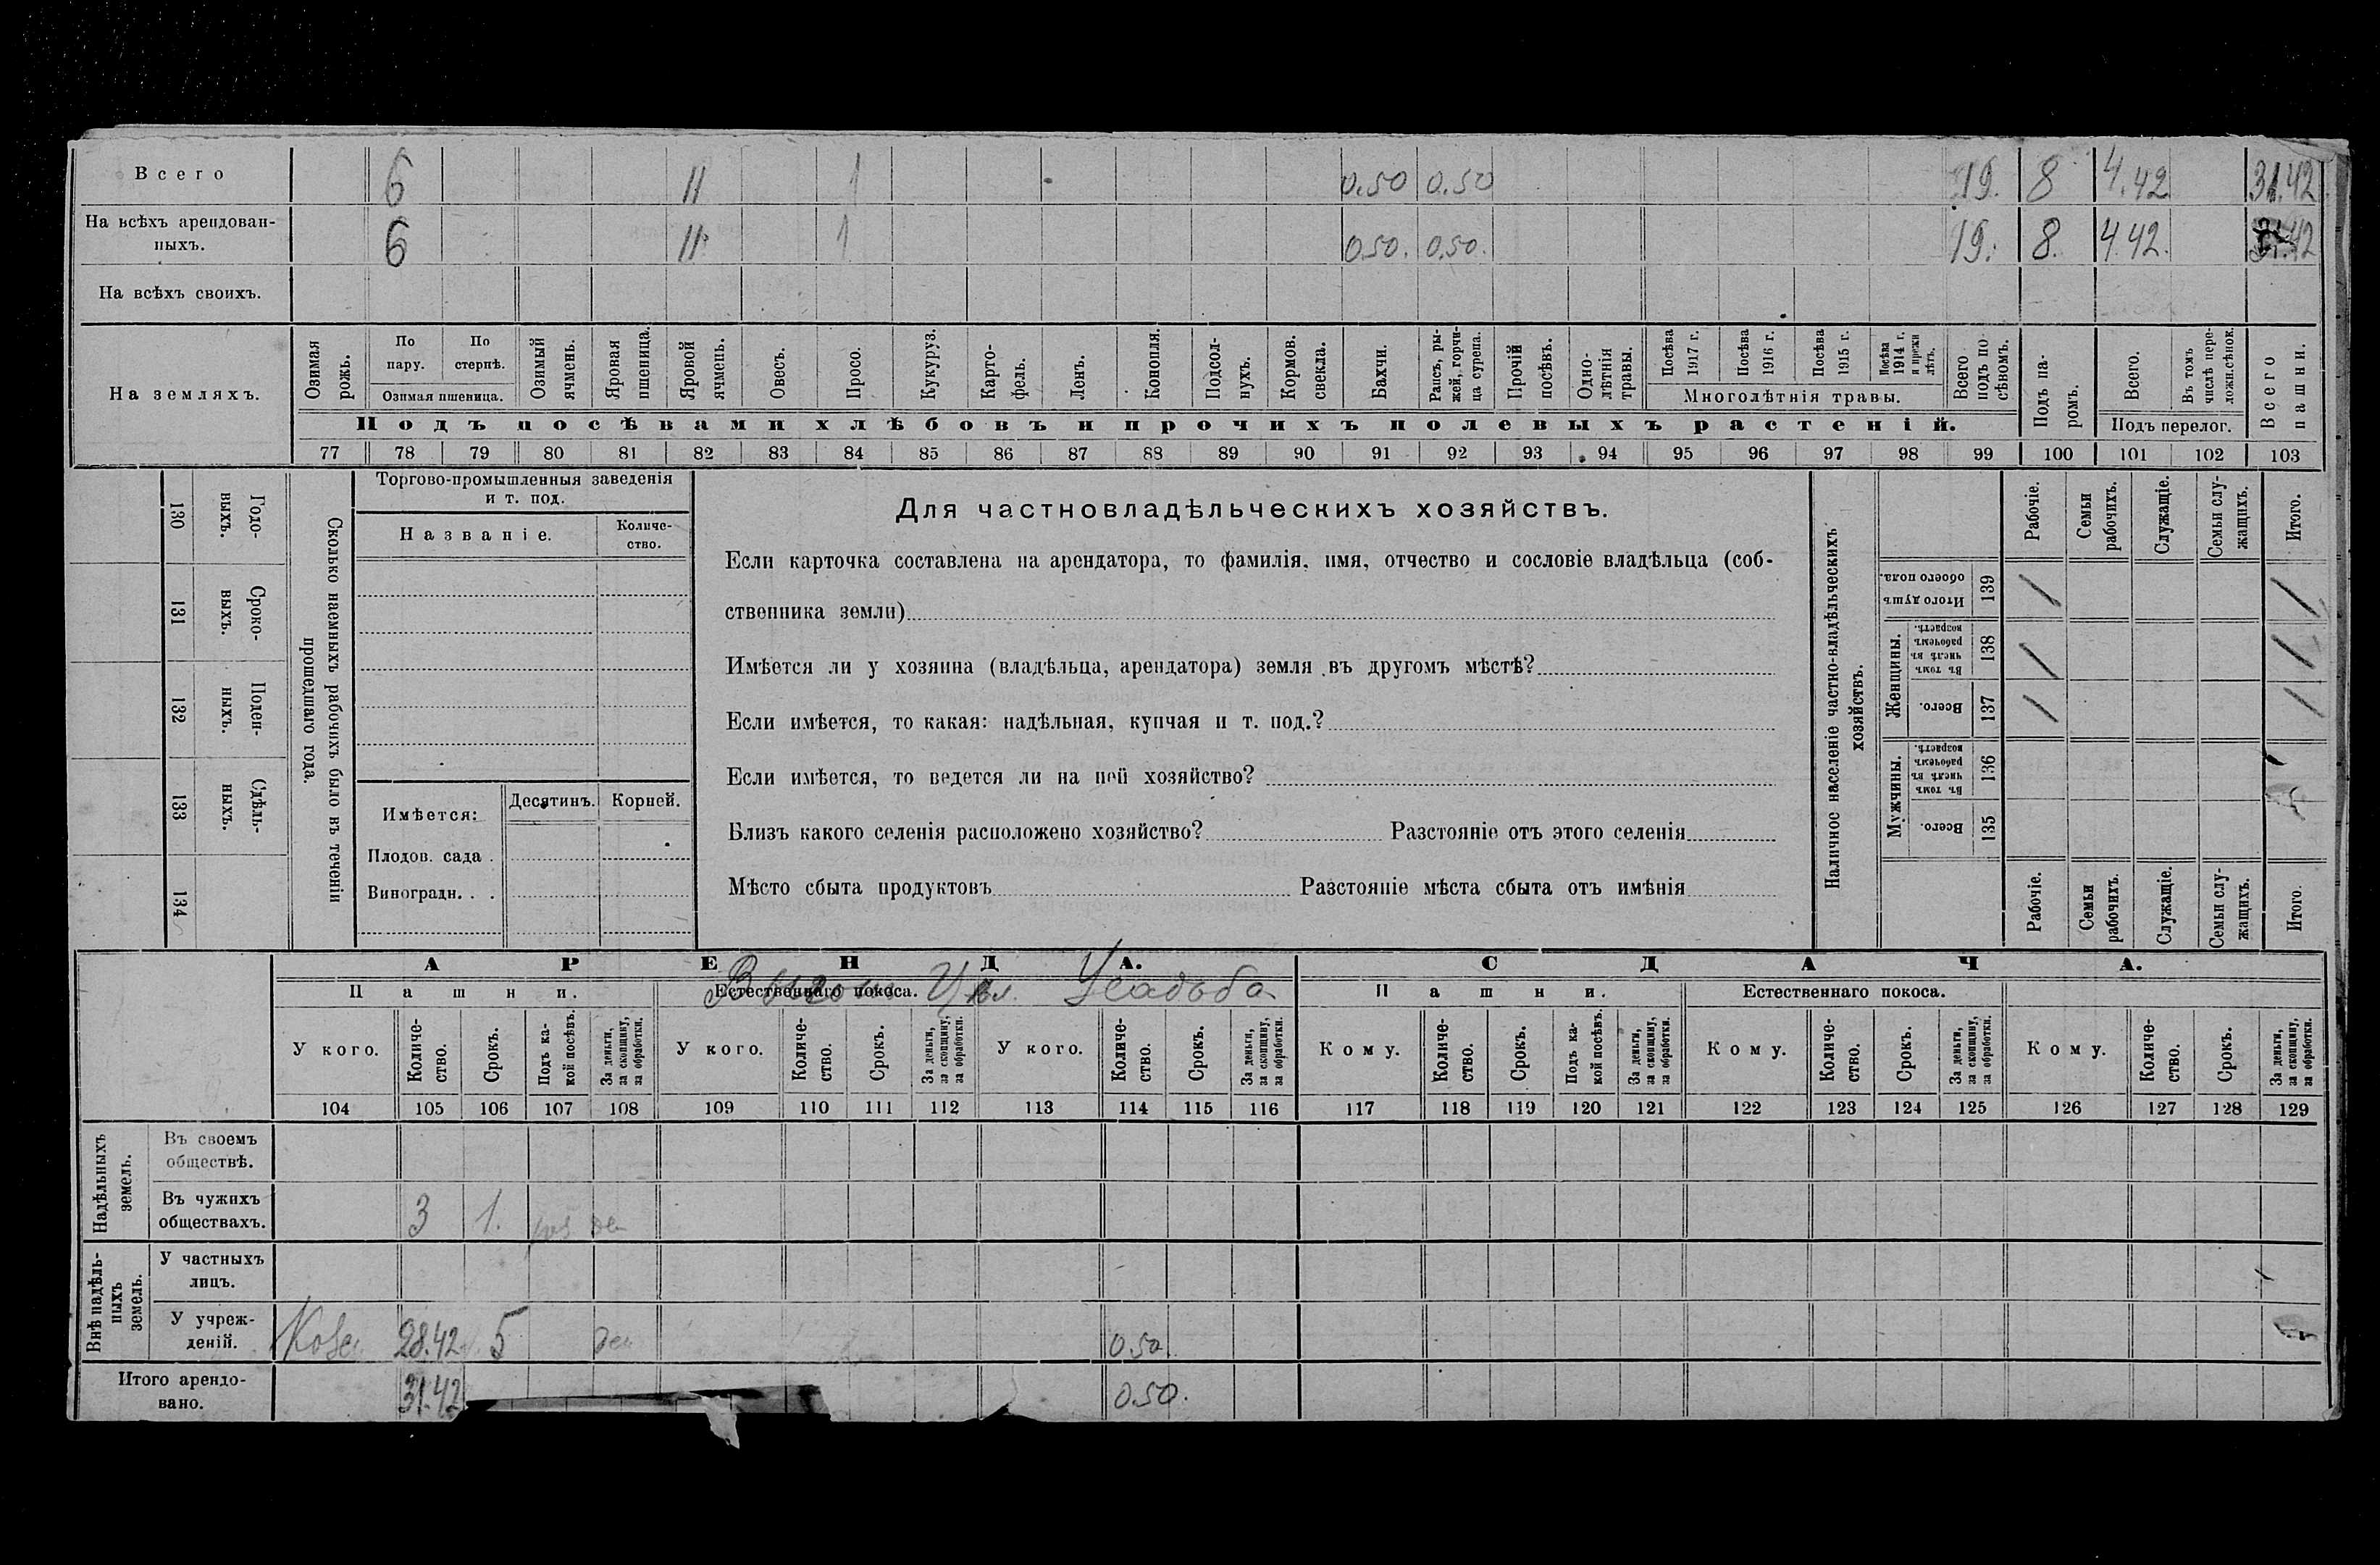 Всего 6 11 1 0.50 0.50 19. 8 4.42 31.42
На всѣхъ арендован-
ныхъ. 6 11 1 0.50. 0.50. 19. 8. 4.42. 31.42
На всѣхъ своихъ.
На земляхъ.
Озимая рожь.
По пару.
По стернѣ.
Озимая пшеница.
Озимый ячмень.
Яровая пшеница.
Яровой ячмень.
Овесъ.
Просо.
Кукуруз.
Карто-
фель.
Ленъ.
Конопля.
Подсол-
нухъ.
Кормов. свекла.
Бахчи.
Рапсъ, ры-
жей, горчи-
ца сурепа.
Прочій посѣвъ.
Одно-
лѣтнія травы.
Посѣва 1917 г.
Посѣва 1916 г.
Посѣва 1915 г.
Посѣва 1914 г. и прежн лѣтъ.
Многолѣтнія травы.
Всего подъ по-
сѣвомъ.
Подъ па-
ромъ.
Всего.
Въ томъ числѣ пере-
ложн.сѣнок.
Подъ перелог.
Всего пашни.
Подъ посѣвами хлѣбовъ и прочихъ полевыхъ растеній.
77 78 79 80 81 82 83 84 85 86 87 88 89 90 91 92 93 94 95 96 97 98 99 100 101 102 103
130 Годо-
выхъ.
131 Сроко-
выхъ.
132 Поден-
ныхъ.
133 Сдѣль-
ныхъ.
134
Сколько наемныхъ рабочихъ было въ теченіи
прошедшаго года.
Торгово-промышленныя заведенія
и т. под.
Названіе.
Количе-
ство.
Имѣется: Десятинъ. Корней.
Плодов. сада .
Виноградн. . .
Для частновладѣльческихъ хозяйствъ.
Если карточка составлена на арендатора, то фамилія, имя, отчество и сословіе владѣльца (соб-
ственника земли)
Имѣется ли у хозяина (владѣльца, арендатора) земля въ другомъ мѣстѣ?
Если имѣется, то какая: надѣльная, купчая и т. под.?
Если имѣется, то ведется ли на ней хозяйство?
Близъ какого селенія расположено хозяйство? Разстояніе отъ этого селенія
Мѣсто сбыта продуктовъ Разстояніе мѣста сбыта отъ имѣнія
Наличное населеніе частно-владѣльческихъ
хозяйствъ.
Рабочіе.
Семьи рабочихъ.
Служащіе.
Семьи слу-
жащихъ.
Итого.
Итого душъ обоего пола. 139
Женщины.
Въ томъ числѣ въ рабочемъ возрастѣ. 138
Всего. 137
Мужчины.
Въ томъ числѣ въ рабочемъ возрастѣ. 136
Всего. 135
Рабочіе.
Семьи рабочихъ.
Служащіе.
Семьи слу-
жащихъ.
Итого.
АРЕНДА. СДАЧА.
Пашни. Естественнаго покоса. Усадьба Пашни. Естественнаго покоса.
У кого. Количе-
ство. Срокъ. Подъ ка-
кой посѣвъ. За деньги, за скопщину, за обработки.
У кого. Количе-
ство. Срокъ. За деньги, за скопщину, за обработки.
У кого. Количе-
ство. Срокъ. За деньги, за скопщину, за обработки.
Кому. Количе-
ство. Срокъ. Подъ ка-
кой посѣвъ. За деньги, за скопщину, за обработки.
Кому. Количе-
ство. Срокъ. За деньги, за скопщину, за обработки.
Кому. Количе-
ство. Срокъ. За деньги, за скопщину, за обработки.
104 105 106 107 108 109 110 111 112 113 114 115 116 117 118 119 120 121 122 123 124 125 126 127 128 129
Надѣльныхъ земель.
Въ своемъ
обществѣ.
Въ чужихъ
обществахъ. 3 1.
Внѣ надѣль-
ныхъ земель.
У частныхъ
лицъ.
У учреж-
деній. 28.42 5 ден 0.50.
Итого арендо-
вано. 31.42 0.50.